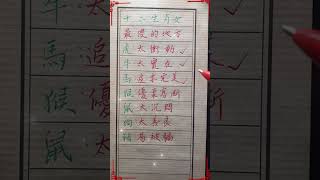 十二生肖女
最傻的地方
虎太衝動✓
牛太實在✓
馬追求完美✓
猴優柔寡斷
鼠太沉悶
狗太善良
豬易被騙
牛太
馬追
猴優
鼠太